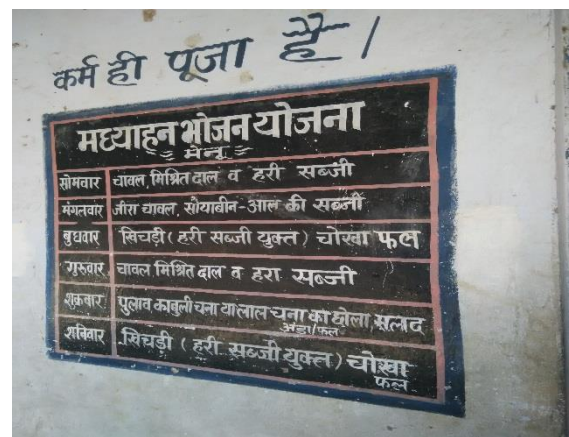 कर्म ही पूजा है।
मध्याहन भोजन योजना
मेनू
सोमवार चावल, मिश्रित दाल व हरी सब्जी
मंगलवार जीरा चावल, सोयाबीन-आल की सब्जी
बुधवार खिचड़ी (हरी सब्जी युक्त) चोखा फल
गुरुवार चावल मिश्रित दाल व हरा सब्जी
शुक्रवार पुलाव काबुली चना या लाल चना का छोला सलाद
अंडा/फल
शनिवार खिचड़ी (हरी सब्जी युक्त) चोखा
फल